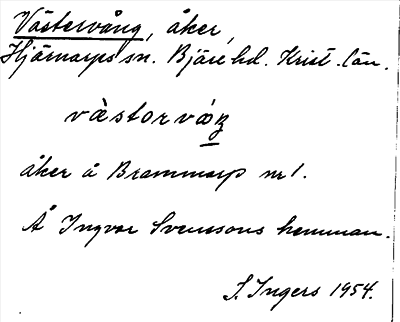 Västervång, åker,
Hjärnarps sn. Bjäre hd. Krist. län.
vàstorváŋ
åker å Brammarp nr 1.
Å Ingvar Svenssons hemman.
I. Ingers 1954.